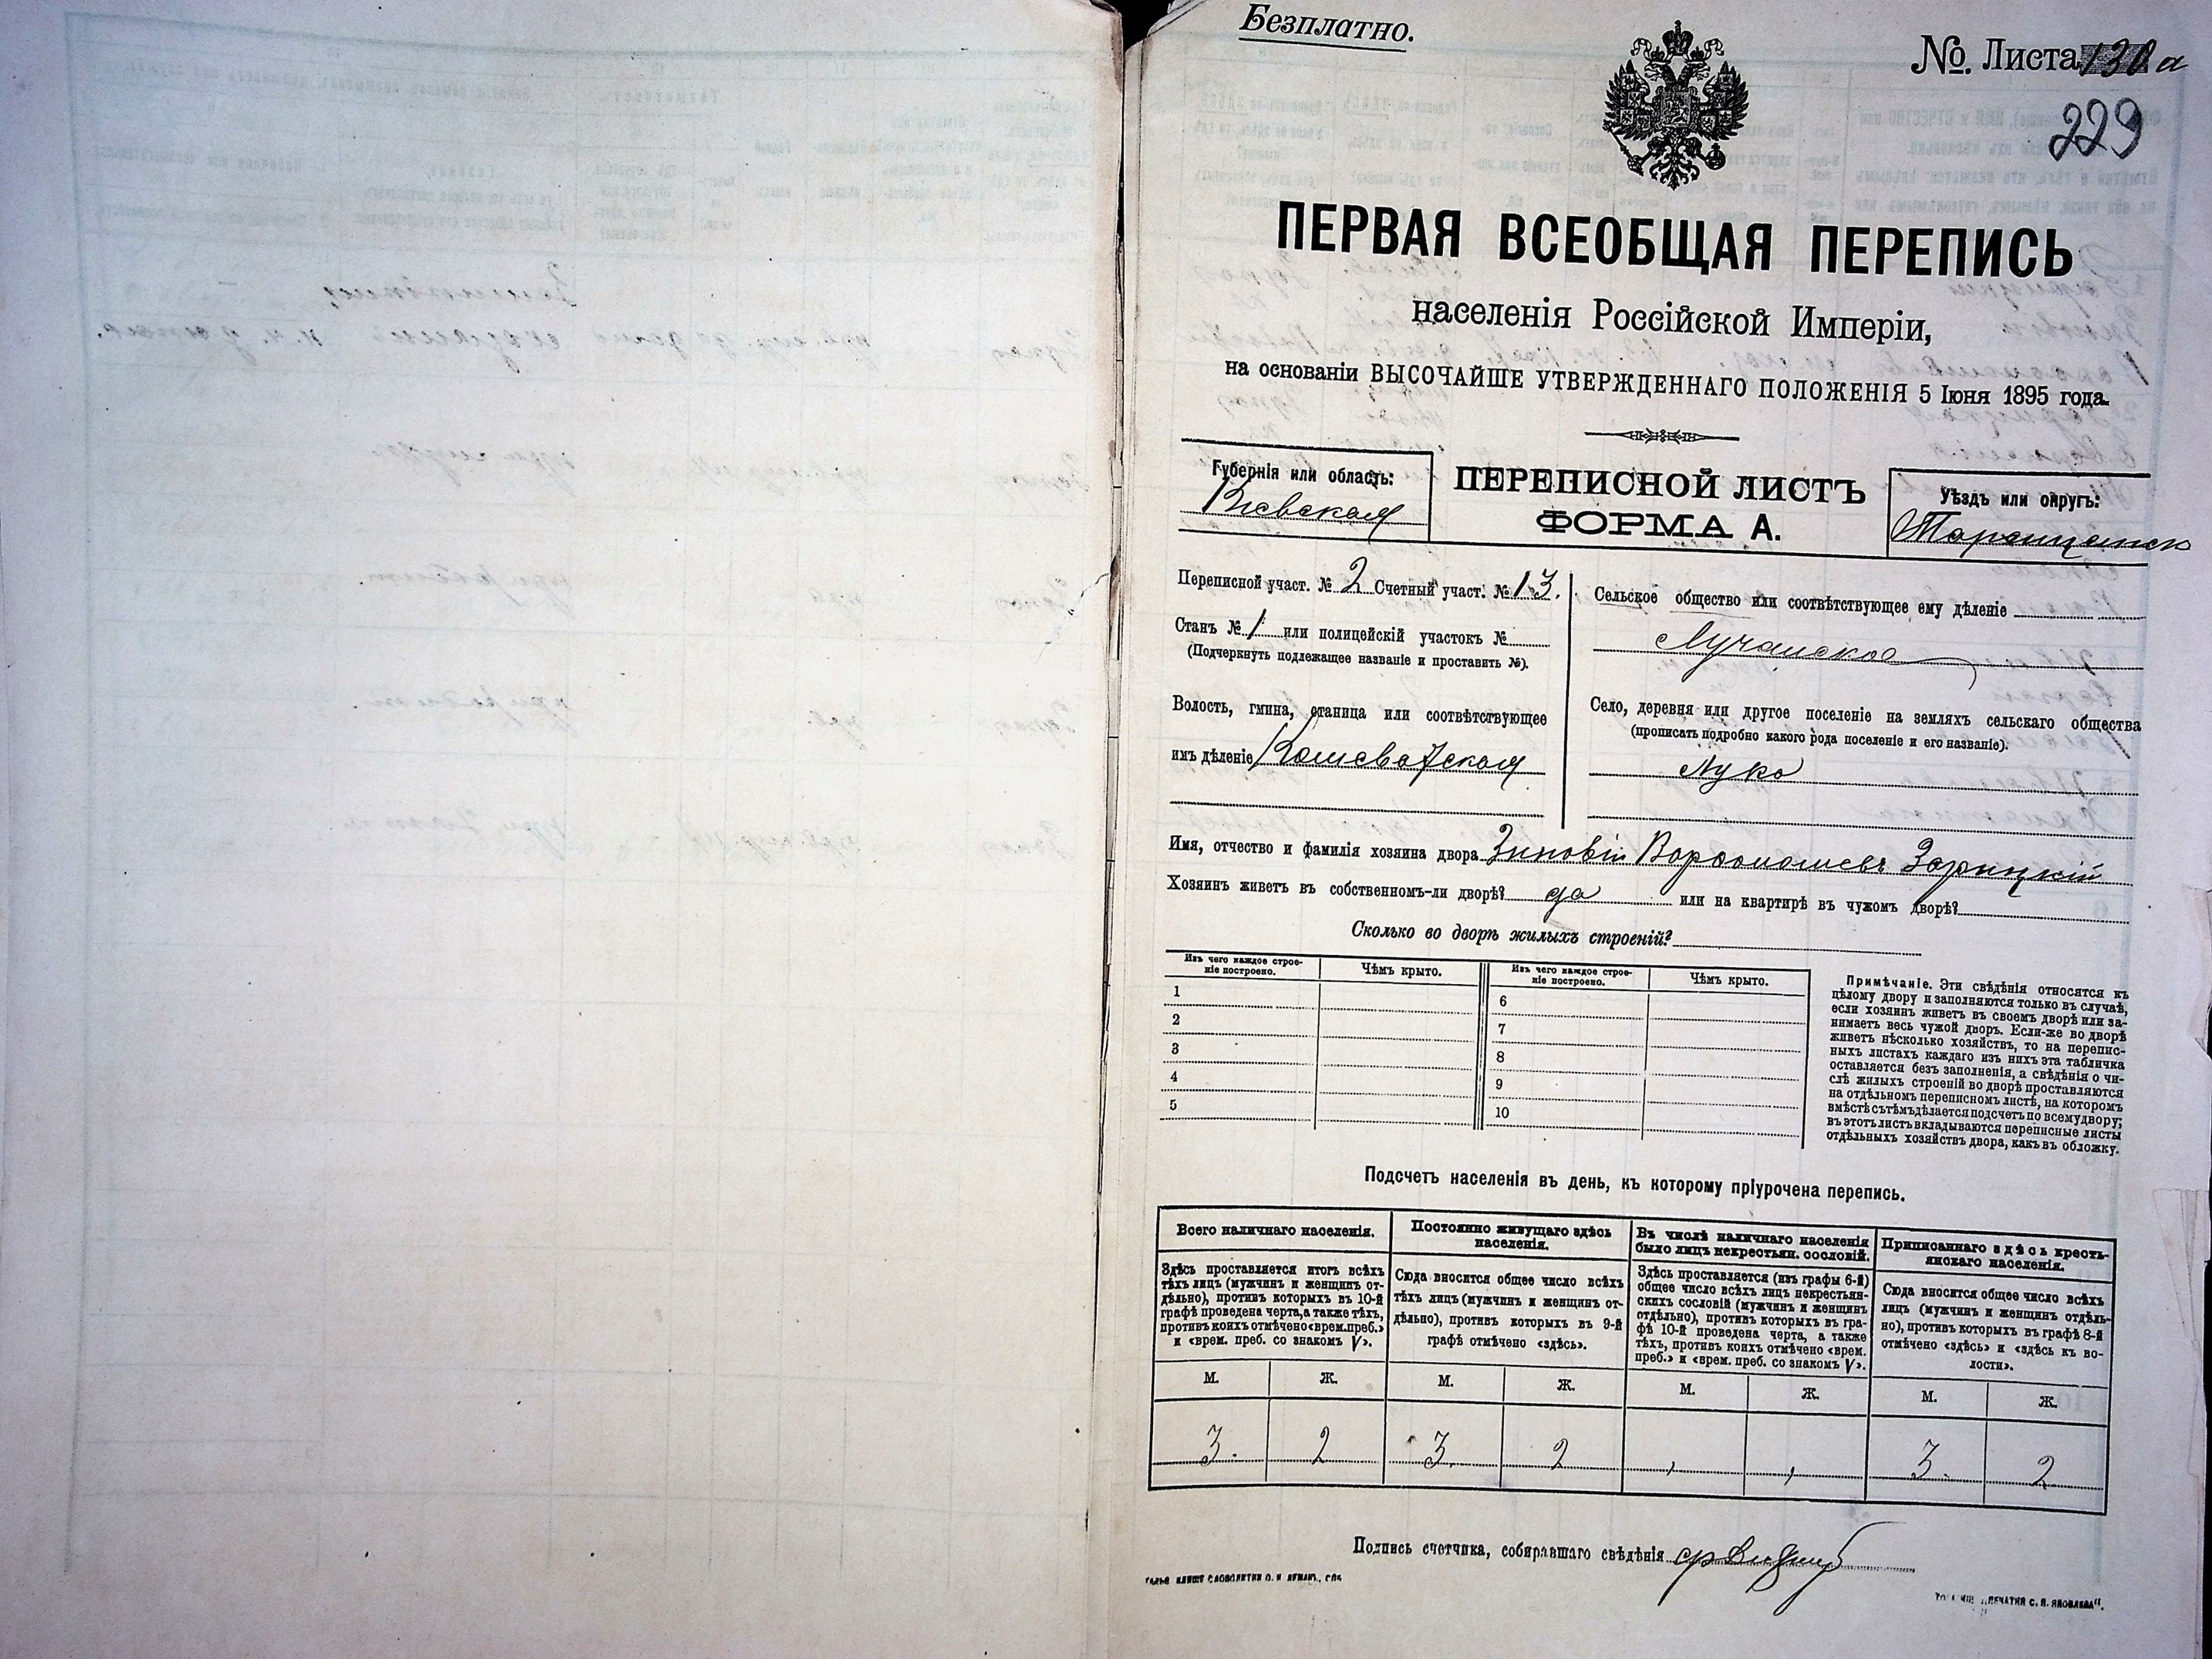 Безплатно.
№. Листа 130 а
229
ПЕРВАЯ ВСЕОБЩАЯ ПЕРЕПИСЬ
населенія Россійской Имперіи,
на основаніи ВЫСОЧАЙШЕ УТВЕРЖДЕННАГО ПОЛОЖЕНІЯ 5 Іюня 1895 года.
Губернія или область:
Кіевская
ПЕРЕПИСНОЙ ЛИСТЪ
ФОРМА А.
Уѣздъ или округъ:
Таращанск
Переписной участ. № 2 Счетный участ. № 13.
Станъ № 1 или полицейскій участокъ №
(Подчеркнуть подлежащее названіе и проставить №).
Волость, гмина, станица или соотвѣтствующее
имъ дѣленіе Кошеватская
Сельское общество или соотвѣтствующее ему дѣленіе
Лучанское
Село, деревня или другое поселеніе на земляхъ сельскаго общества
(прописать подробно какого рода поселеніе и его названіе).
Лука
Имя, отчество и фамилія хозяина двора Зиновій Варѳоломіевъ Зарицкій
Хозяинъ живетъ въ собственномъ-ли дворѣ? да или на квартирѣ въ чужомъ дворѣ?
Сколько во дворѣ жилыхъ строеній?
Изъ чего каждое строе-
ніе построено.
Чѣмъ крыто.
Изъ чего каждое строе-
ніе построено.
Чѣмъ крыто.
1
2
3
4
5
6
7
8
9
10
Примѣчаніе. Эти свѣдѣнія относятся къ
цѣлому двору и заполняются только въ случаѣ,
если хозяинъ живетъ въ своемъ дворѣ или за-
нимаетъ весь чужой дворъ. Если-же во дворѣ
живетъ нѣсколько хозяйствъ, то на перепис-
ныхъ листахъ каждаго изъ нихъ эта табличка
оставляется безъ заполненія, а свѣдѣнія о чи-
слѣ жилыхъ строеній во дворѣ проставляются
на отдѣльномъ переписномъ листѣ, на которомъ
вмѣстѣ съ тѣмъ дѣлается подсчетъ по всему двору;
въ этотъ листъ вкладываются переписные листы
отдѣльныхъ хозяйствъ двора, какъ въ обложку.
Подсчетъ населенія въ день, къ которому пріурочена перепись.
Всего наличнаго населенія.
Здѣсь проставляется итогъ всѣхъ
тѣхъ лицъ (мужчинъ и женщинъ от-
дѣльно), противъ которыхъ въ 10-й
графѣ проведена черта, а также тѣхъ,
противъ коихъ отмѣчено «врем. преб.»
и «врем. преб. со знакомъ V».
Постоянно живущаго здѣсь
населенія.
Сюда вносится общее число всѣхъ
тѣхъ лицъ (мужчинъ и женщинъ от-
дѣльно), противъ которыхъ въ 9-й
графѣ отмѣчено «здѣсь».
Въ числѣ наличнаго населенія
было лицъ некрестьян. сословій.
Здѣсь проставляется (изъ графы 6-й)
общее число всѣхъ лицъ некрестьян-
скихъ сословій (мужчинъ и женщинъ
отдѣльно), противъ которыхъ въ гра-
фѣ 10-й проведена черта, а также
тѣхъ, противъ коихъ отмѣчено «врем.
преб.» и «врем. преб. со знакомъ V».
Приписаннаго здѣсь кресть-
янскаго населенія.
Сюда вносится общее число всѣхъ
лицъ (мужчинъ и женщинъ отдѣль-
но), противъ которыхъ въ графѣ 8-й
отмѣчено «здѣсь» и «здѣсь къ во-
лости».
М. Ж. М. Ж. М. Ж. М. Ж.
3. 2 3 2 , , 3. 2
Подпись счетчика, собиравшаго свѣдѣнія